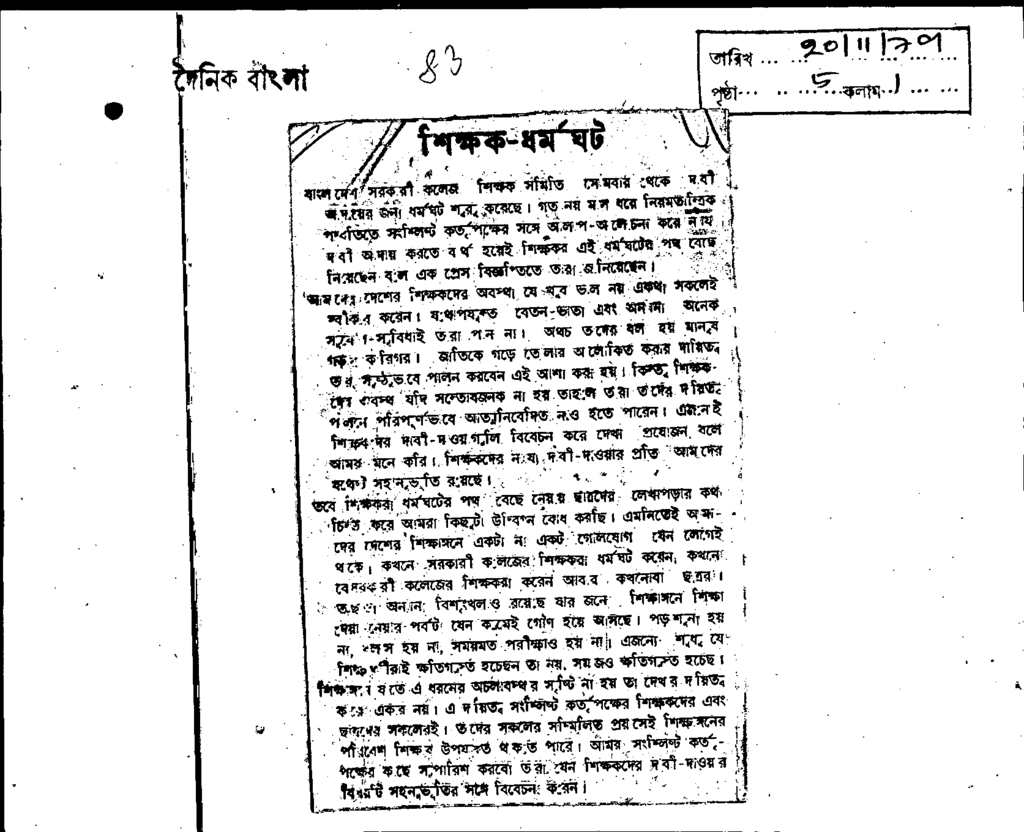 দৈনিক বাংলা
৪৩
তারিখ ... ... 20/11/79 ... ... ...
পৃষ্ঠা... .. ... 5 ...কলাম... 1 ... ...
শিক্ষক-ধর্মঘট
বাংলাদেশ সরকারী কলেজ শিক্ষক সমিতি সোমবার থেকে দাবী
আদায়ের জন্য ধর্মঘট শুরু করেছে। গত নয় মাস ধরে নিয়মতান্ত্রিক
পদ্ধতিতে সংশ্লিষ্ট কর্তৃপক্ষের সঙ্গে আলাপ-আলোচনা করে ন্যায্য
দাবী আদায় করতে ব্যর্থ হয়েই শিক্ষকরা এই ধর্মঘটের পথ বেছে
নিয়েছেন বলে এক প্রেস বিজ্ঞপ্তিতে তারা জানিয়েছেন।
আমাদের দেশের শিক্ষকদের অবস্থা যে খুব ভাল নয় একথা সকলেই
স্বীকার করেন। যথোপযুক্ত বেতন-ভাতা এবং অন্যান্য অনেক
সুযোগ-সুবিধাই তারা পান না। অথচ তাদের বলা হয় মানুষ
গড়ার কারিগর। জাতিকে গড়ে তোলার আলোকিত করার দায়িত্ব
তারা সুষ্ঠুভাবে পালন করবেন এই আশা করা হয়। কিন্তু শিক্ষক-
দের অবস্থা যদি সন্তোষজনক না হয় তাহলে তারা তাদের দায়িত্ব
পালনে পরিপূর্ণভাবে আত্মনিবেদিত নাও হতে পারেন। এজন্যেই
শিক্ষকদের দাবী-দাওয়াগুলি বিবেচনা করে দেখা প্রয়োজন বলে
আমরা মনে করি। শিক্ষকদের ন্যায্য দাবী-দাওয়ার প্রতি আমাদের
যথেষ্ট সহানুভূতি রয়েছে।
তবে শিক্ষকরা ধর্মঘটের পথ বেছে নেয়ায় ছাত্রদের লেখাপড়ার কথা
চিন্তা করে আমরা কিছুটা উদ্বিগ্ন বোধ করছি। এমনিতেই আমা-
দের দেশের শিক্ষাঙ্গনে একটা না একটা গোলযোগ যেন লেগেই
থাকে। কখনো সরকারী কলেজের শিক্ষকরা ধর্মঘট করেন, কখনো
বেসরকারী কলেজের শিক্ষকরা করেন আবার কখনোবা ছাত্ররা।
তাছাড়া অন্যান্য বিশৃংখলাও রয়েছে যার জন্যে শিক্ষাঙ্গনে শিক্ষা
দেয়া নেয়ার পর্বটা যেন ক্রমেই গৌণ হয়ে আসছে। পড়াশুনা হয়
না, ক্লাস হয় না, সময়মত পরীক্ষাও হয় না। এজন্যে শুধু যে
শিক্ষার্থীরাই ক্ষতিগ্রস্ত হচ্ছেন তা নয়, সমাজও ক্ষতিগ্রস্ত হচ্ছে।
শিক্ষাঙ্গনে যাতে এ ধরনের অচলাবস্থার সৃষ্টি না হয় তা দেখার দায়িত্ব
কারো একার নয়। এ দায়িত্ব সংশ্লিষ্ট কর্তৃপক্ষের শিক্ষকদের এবং
ছাত্রদের সকলেরই। তাদের সকলের সম্মিলিত প্রয়াসেই শিক্ষাঙ্গনের
পরিবেশ শিক্ষার উপযুক্ত থাকতে পারে। আমরা সংশ্লিষ্ট কর্তৃ-
পক্ষের কাছে সুপারিশ করবো তারা যেন শিক্ষকদের দাবী-দাওয়ার
বিষয়টি সহানুভূতির সঙ্গে বিবেচনা করেন।